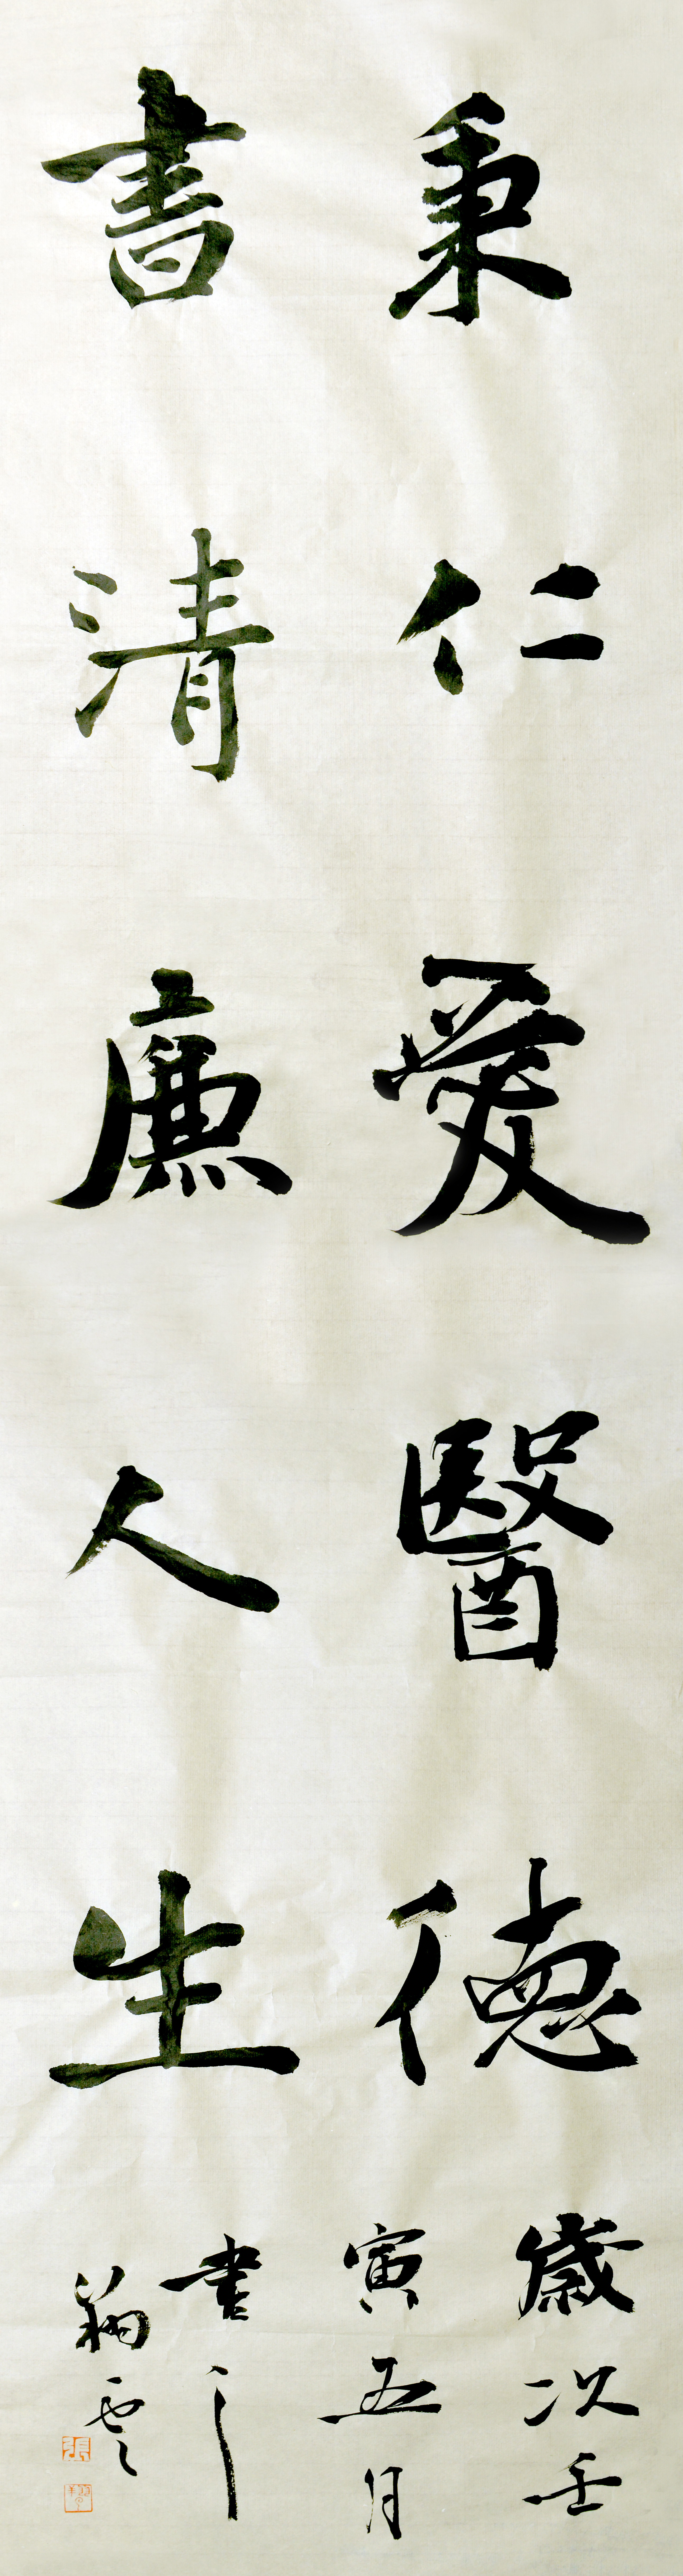 秉仁愛醫德
書清廉人生
歲次壬
寅五月
書之
雲
張